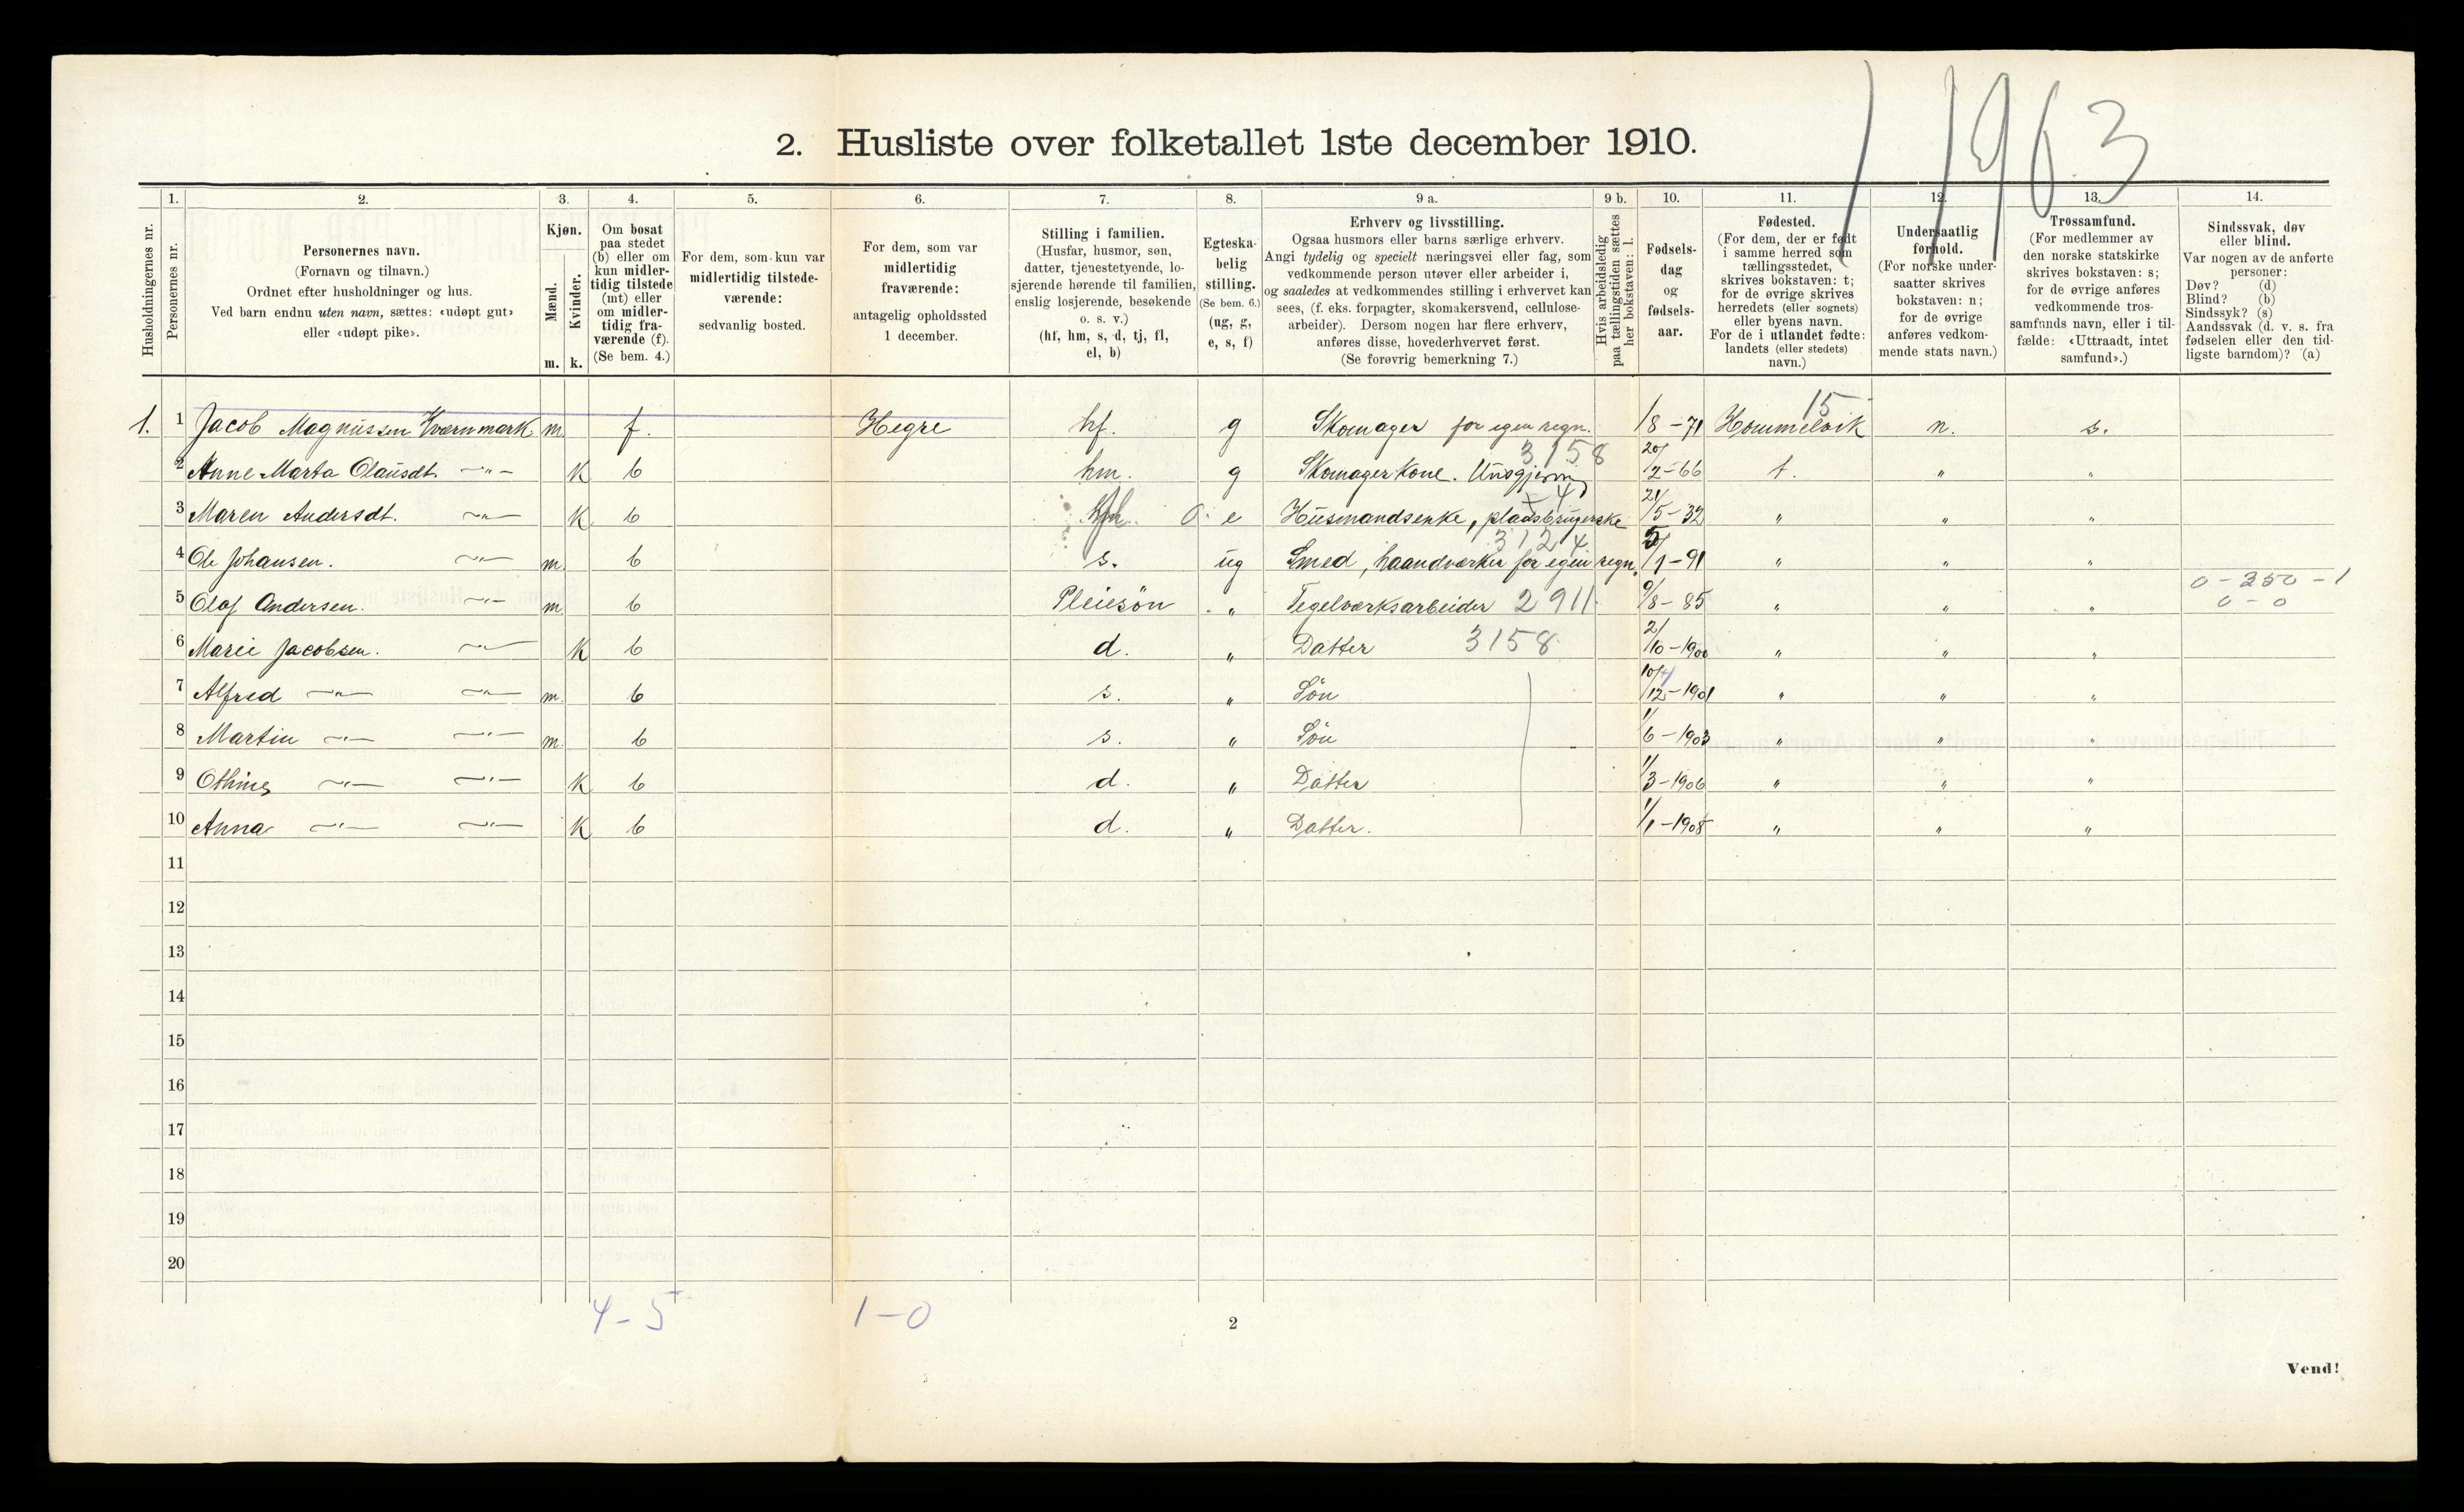 1963
2. Husliste over folketallet 1ste december 1910.
Husholdningernes nr.
1. Personernes nr.
2. Personernes navn. (Fornavn og tilnavn.) Ordnet efter husholdninger og hus. Ved barn endnu uten navn, sættes: «udøpt gut» eller «udøpt pike».
3. Kjøn. Mænd. m. Kvinder. k.
4. Om bosat paa stedet (b) eller om kun midlertidig tilstede (mt) eller om midlertidig fraværende (f). (Se bem. 4.)
5. For dem, som kun var midlertidig tilstedeværende: sedvanlig bosted.
6. For dem, som var midlertidig fraværende: antagelig opholdssted 1 december.
7. Stilling i familien. (Husfar, husmor, søn, datter, tjenestetyende, losjerende hørende til familien, enslig losjerende, besøkende o. s. v.) (hf, hm, s, d, tj, fl, el, b)
8. Egteskabelig stilling. (Se bem. 6.) (ug, g, e, s, f)
9 a. Erhverv og livsstilling. Ogsaa husmors eller barns særlige erhverv. Angi tydelig og specielt næringsvei eller fag, som vedkommende person utøver eller arbeider i, og saaledes at vedkommendes stilling i erhvervet kan sees, (f. eks. forpagter, skomakersvend, cellulosearbeider). Dersom nogen har flere erhverv, anføres disse, hovederhvervet først. (Se forøvrig bemerkning 7.)
9 b. Hvis arbeidsledig paa tællingstiden sættes her bokstaven: l.
10. Fødselsdag og fødselsaar.
11. Fødested. (For dem, der er født i samme herred som tællingsstedet, skrives bokstaven: t; for de øvrige skrives herredets (eller sognets) eller byens navn. For de i utlandet fødte: landets (eller stedets) navn.)
12. Undersaatlig forhold. (For norske undersaatter skrives bokstaven: n; for de øvrige anføres vedkommende stats navn.)
13. Trossamfund. (For medlemmer av den norske statskirke skrives bokstaven: s; for de øvrige anføres vedkommende trossamfunds navn, eller i tilfælde: «Uttraadt, intet samfund».)
14. Sindssvak, døv eller blind. Var nogen av de anførte personer: Døv? (d) Blind? (b) Sindssyk? (s) Aandssvak (d. v. s. fra fødselen eller den tidligste barndom)? (a)
15
1. 1 Jacob Magnussen Kværnmark m. f. Hegre hf. g Skomager for egen regn. 1/8-71 Hommelvik n. s.
3158
2 Anne-Marta Olausdt. -"- K b hm. g Skomagerkone. Husgjerning 20/2-66 t. " "
3 Maren Andersdt. -"- K b e Husmandsenke, pladsbrugerske 21/5-32 " " "
3124
4 Ole Johansen. -"- m. b s. ug Smed, haandværker for egen regn. 5/1-91 " " "
0-350-1
5 Olaf Andersen. -"- m. b Pleiesøn " Tegelværksarbeider 2911 9/8-85 " " " 0-0
6 Marie Jacobsen. -"- K b d. " Datter 3158 2/10-1900 " " "
7 Alfred -"- -"- m. b s. " Søn 10/12-1901 " " "
8 Martin -"- -"- m. b s. " Søn 1/6-1903 " " "
9 Othine -"- -"- K b d. " Datter 1/3-1906 " " "
10 Anna -"- -"- K b d. " Datter. 1/1-1908 " " "
11
12
13
14
15
16
17
18
19
20
4-5 1-0
2
Vend!